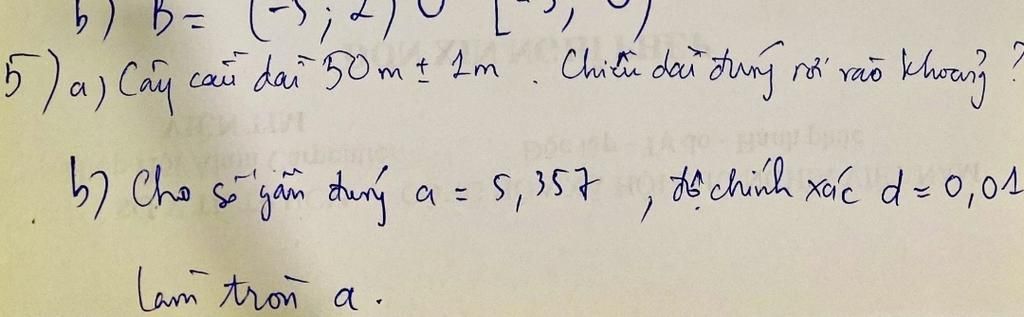 b) B = (-3; 2) ∪ [-3;
5) a) Cây cầu dài 50m ± 1m. Chiều dài đúng rơi vào khoảng?
b) Cho số gần đúng a = 5,357, độ chính xác d = 0,01
làm tròn a.